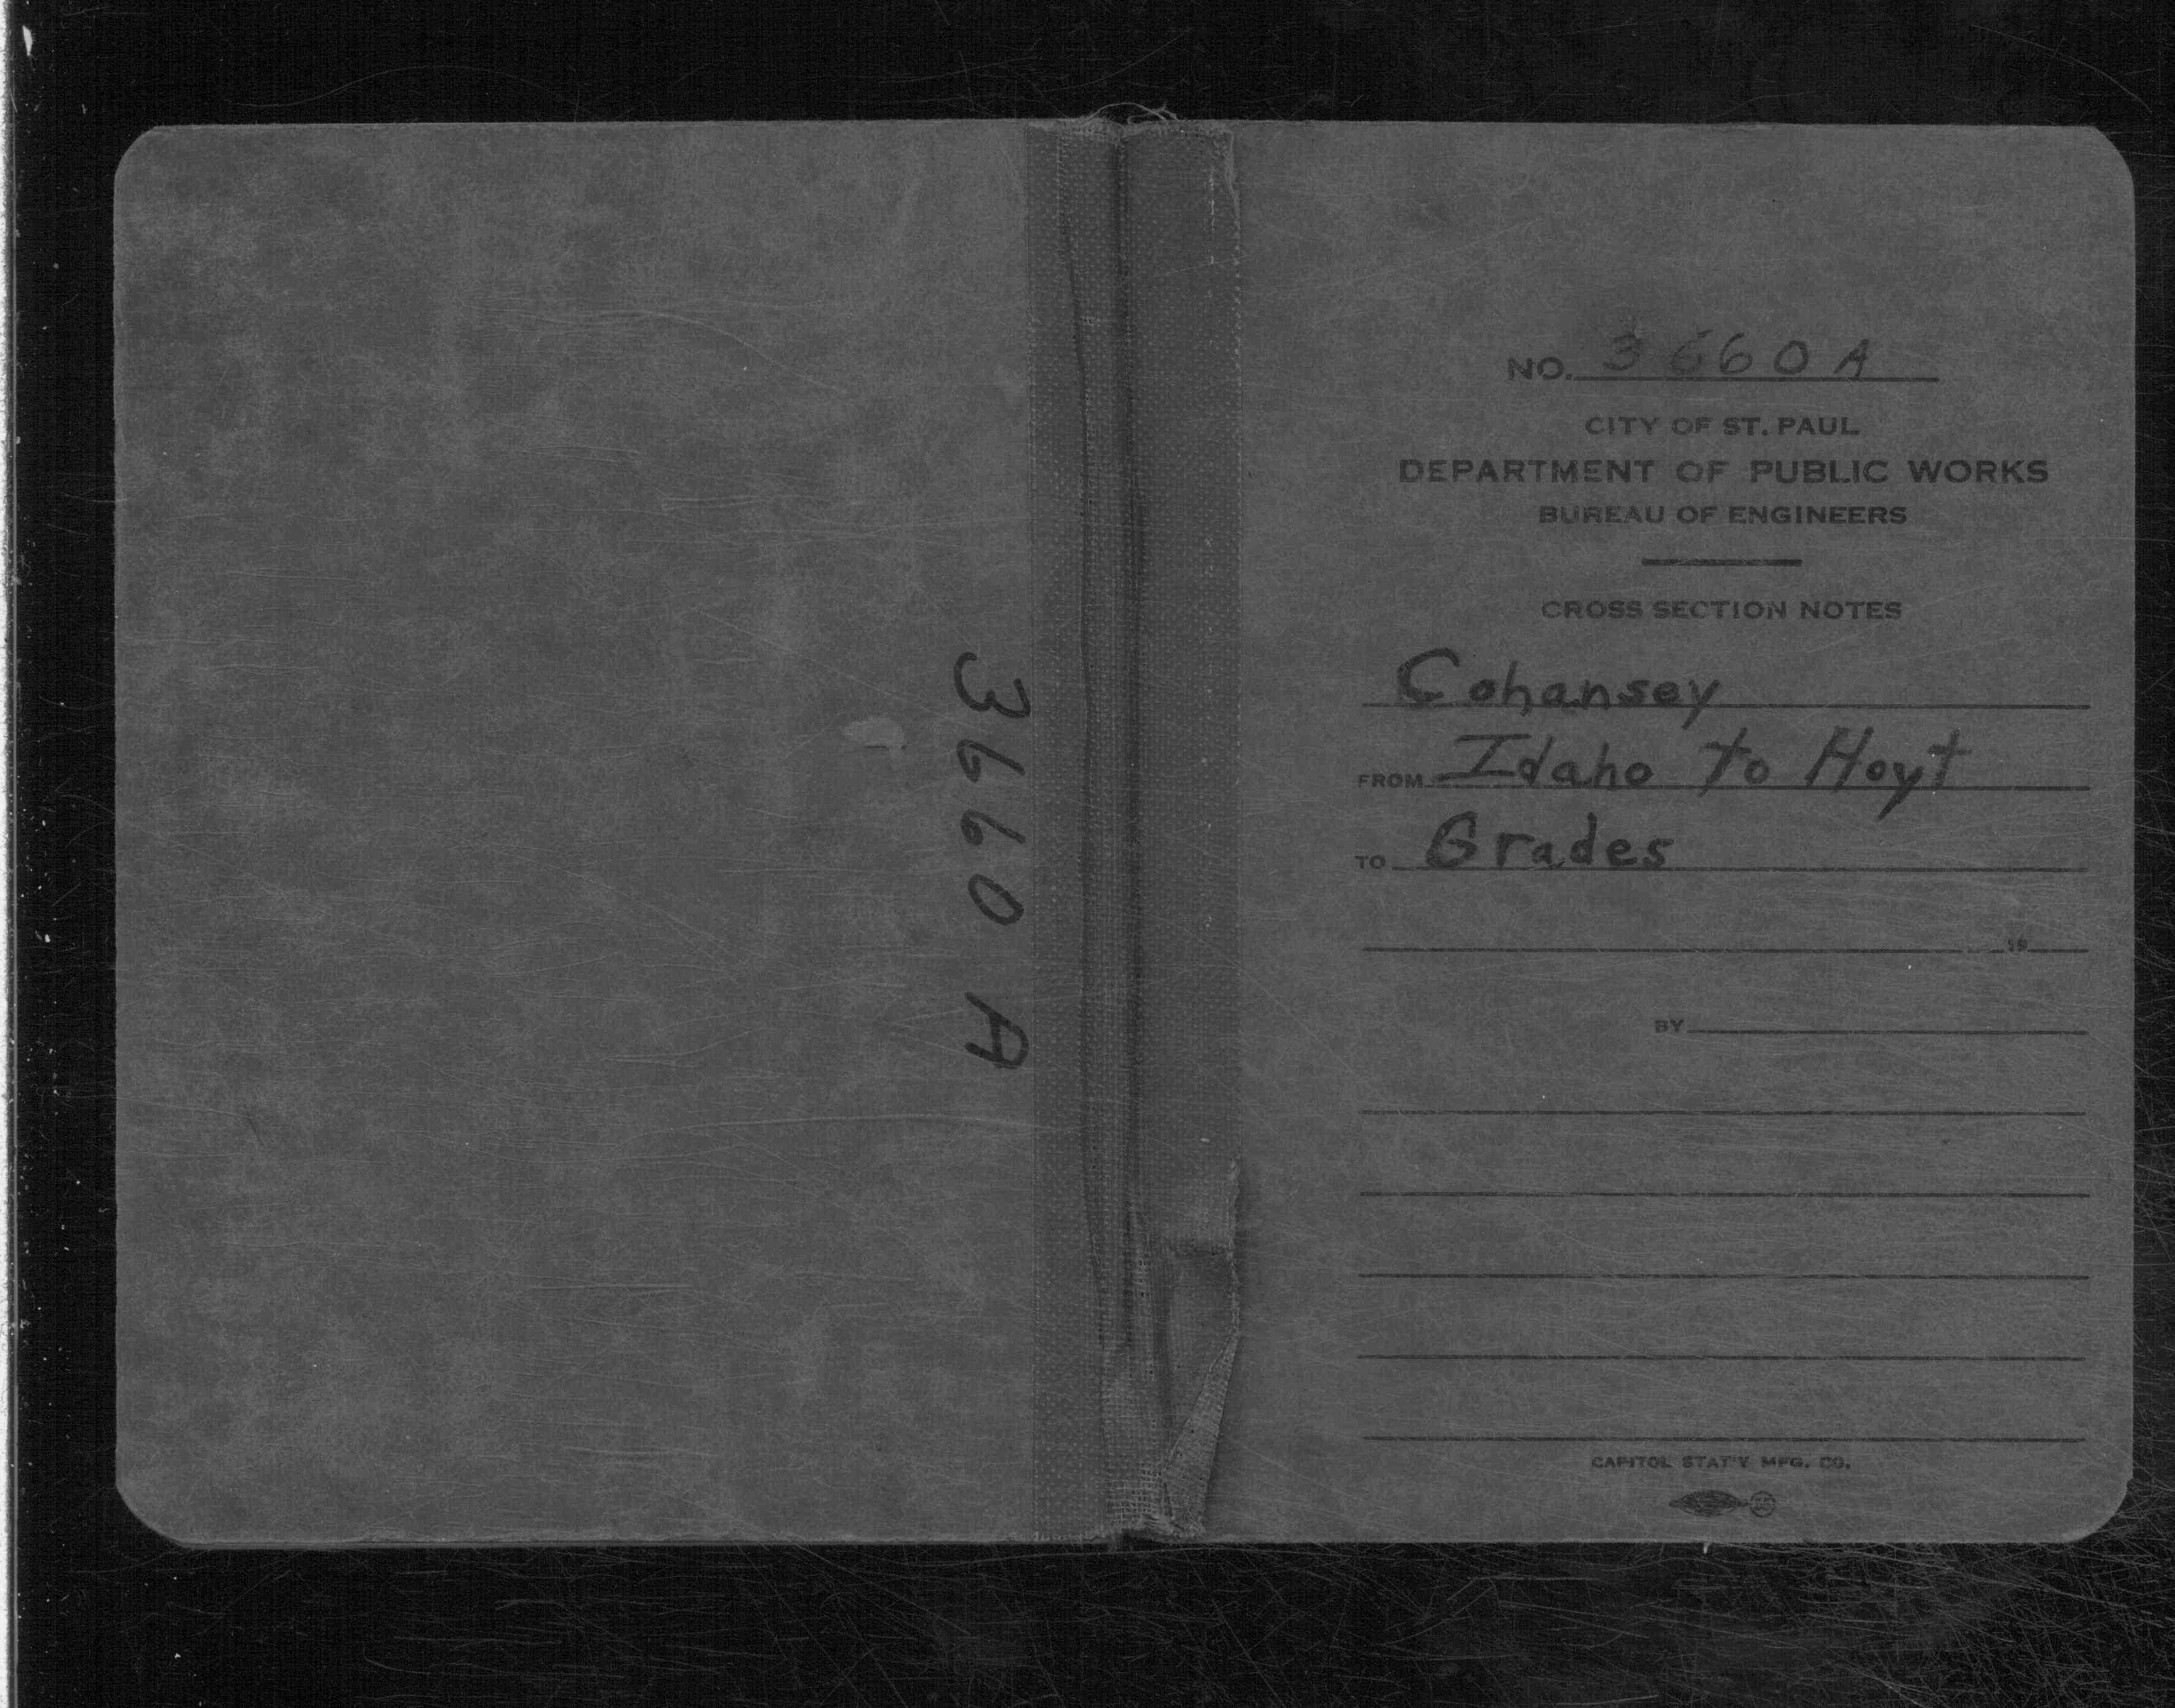 3660 A
NO. 3660A
CITY OF ST. PAUL
DEPARTMENT OF PUBLIC WORKS
BUREAU OF ENGINEERS
CROSS SECTION NOTES
Cohansey
FROM Idaho to Hoyt
TO Grades
19
BY
CAPITOL STAT'Y MFG. CO.